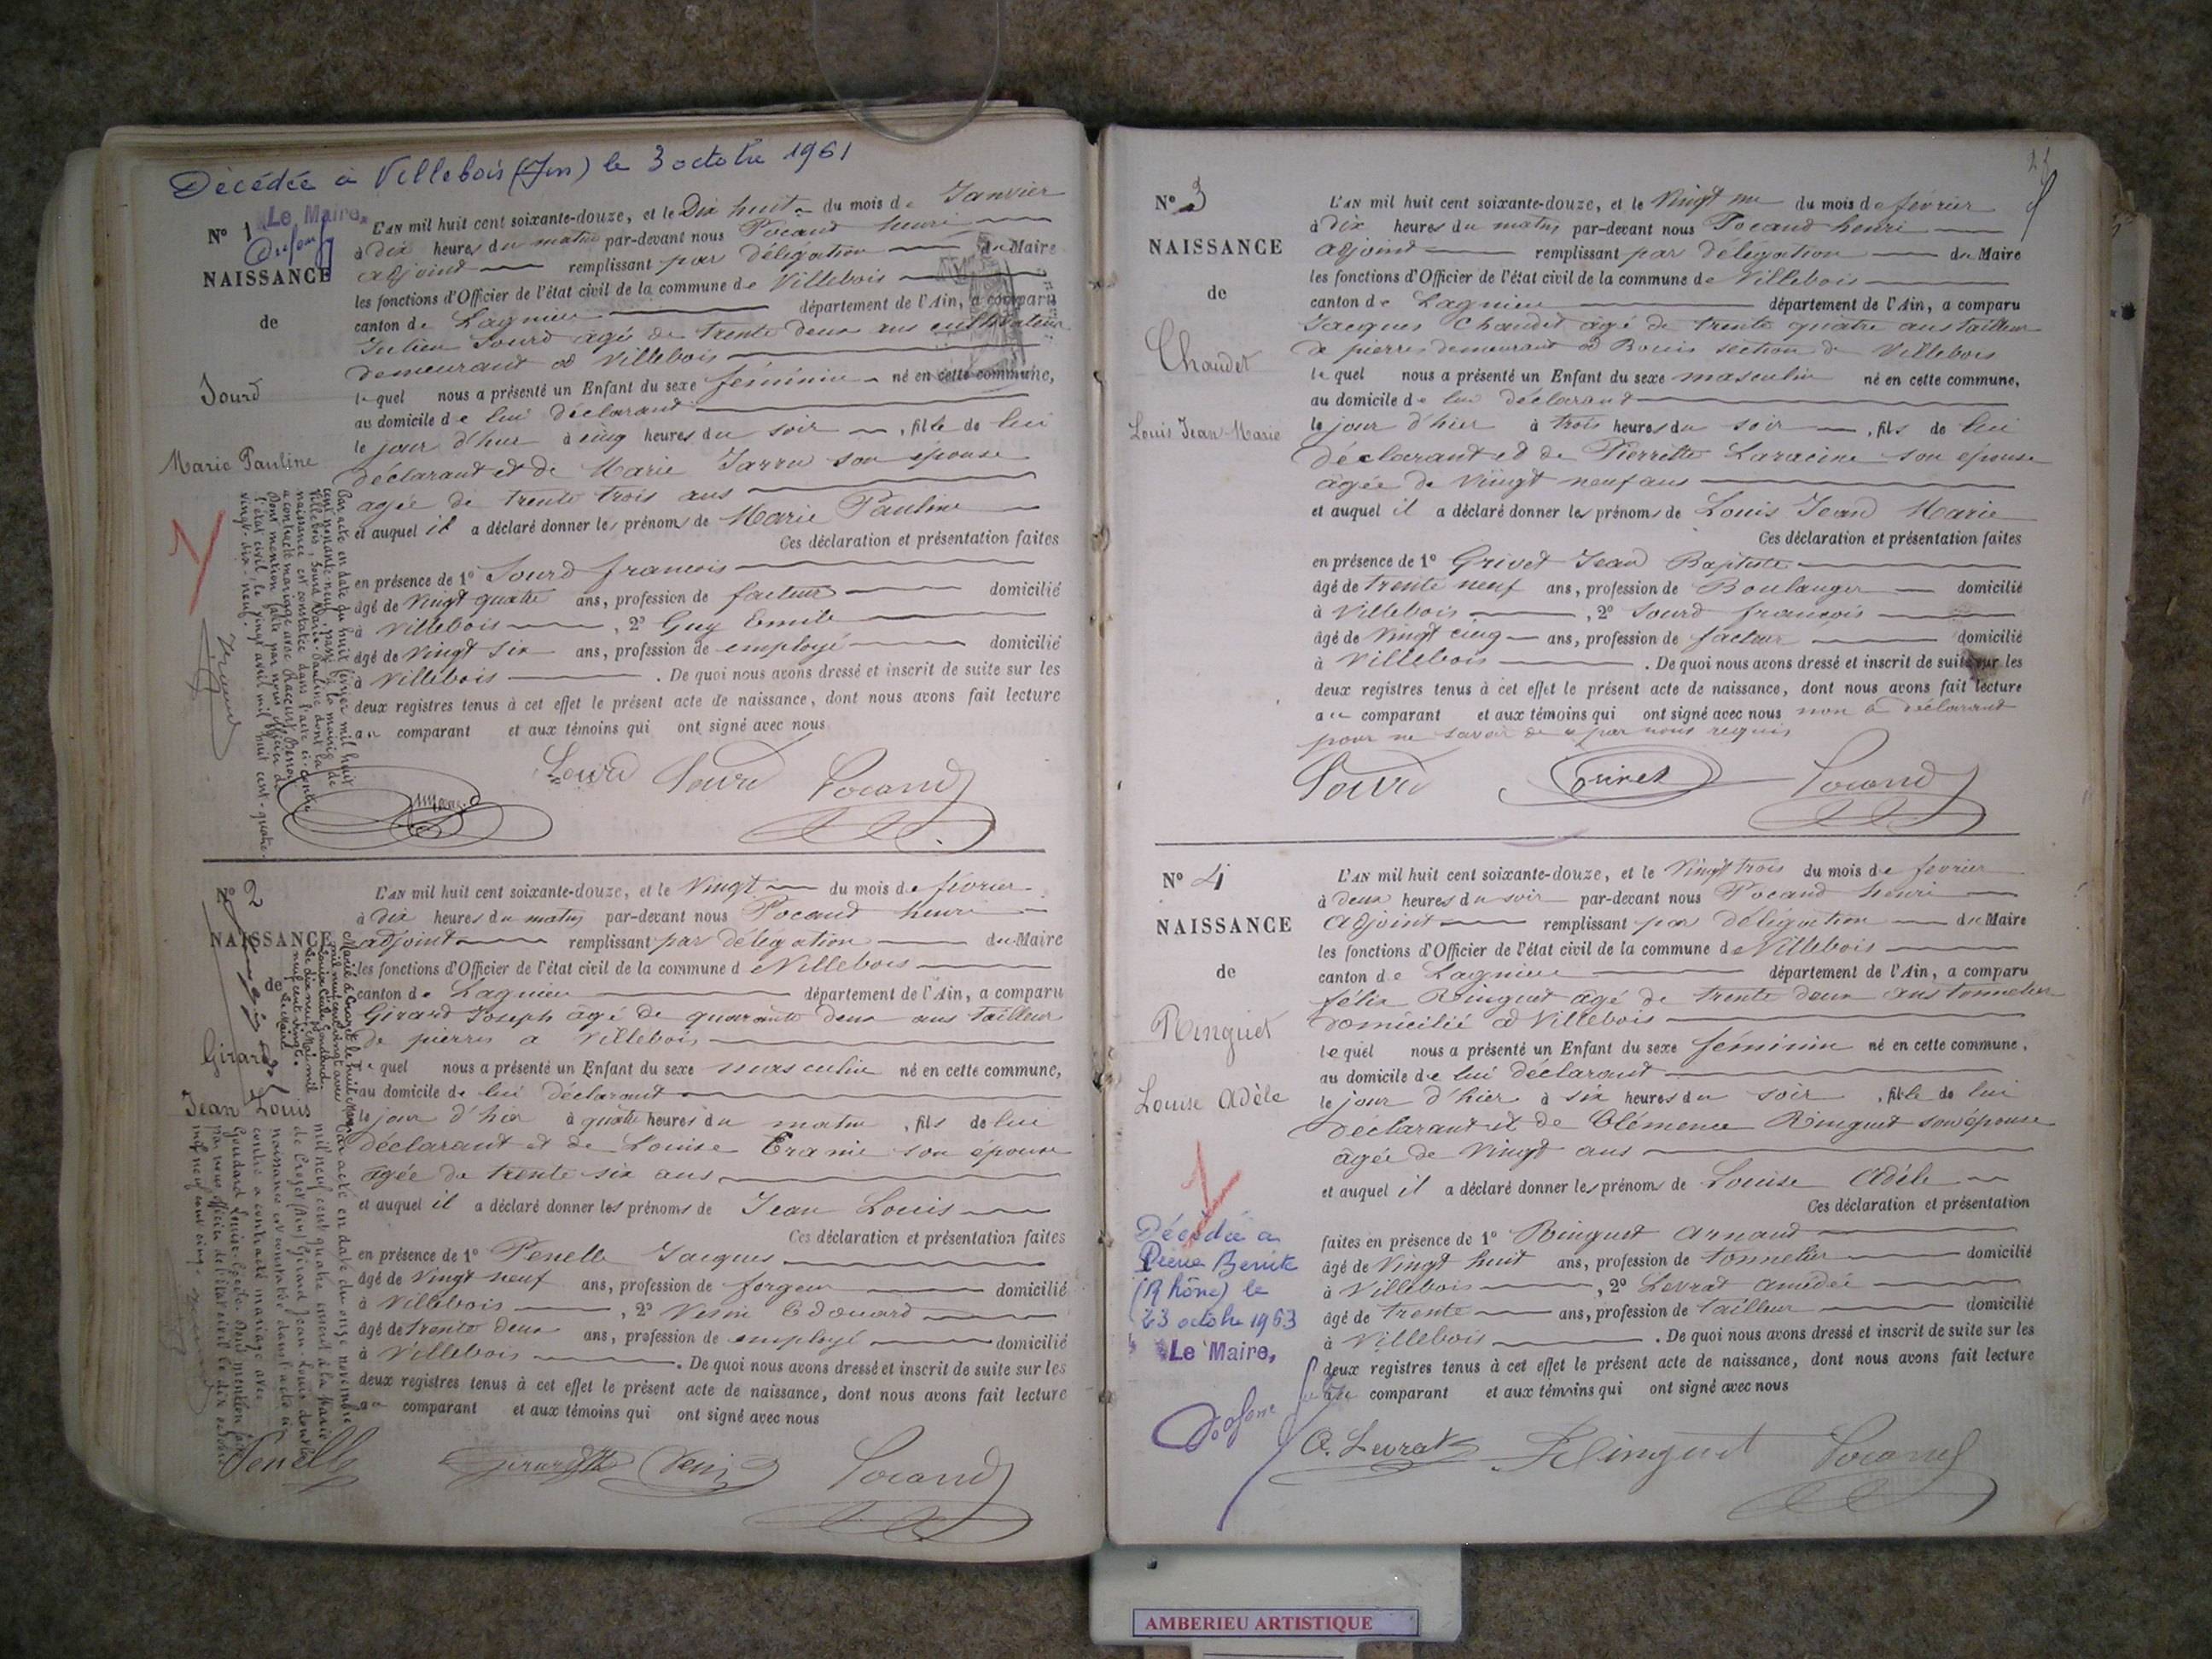 Décédée à Villebois (Ain) le 3 octobre 1961
Le Maire,
N° 1
NAISSANCE
de
Sourd
Marie Pauline
L'AN mil huit cent soixante-douze, et le Dix huit du mois de Janvier
à dix heures du matin par-devant nous Pocand henri
adjoint remplissant par délégation du Maire
les fonctions d'Officier de l'état civil de la commune de Villebois
canton de Lagnieu département de l'Ain, a comparu
Julien Sourd agé de trente deux ans cultivateur
demeurant à Villebois
lequel nous a présenté un Enfant du sexe féminin né en cette commune,
au domicile de lui déclarant
le jour d'hier à cinq heures du soir , fille de lui
déclarant et de Marie Jarru son épouse
agée de trente trois ans
et auquel il a déclaré donner les prénoms de Marie Pauline
Ces déclaration et présentation faites
en présence de 1° Sourd francois
âgé de vingt quatre ans, profession de facteur domicilié
à Villebois , 2° Guy Emile
âgé de vingt six ans, profession de employé domicilié
à Villebois . De quoi nous avons dressé et inscrit de suite sur les
deux registres tenus à cet effet le présent acte de naissance, dont nous avons fait lecture
au comparant et aux témoins qui ont signé avec nous
Par acte en date du huit février mil huit
cent nonante-neuf, passé à la mairie de
Villebois, Sourd Marie-Pauline dont la
naissance est constatée dans l'acte ci-contre
a contracté mariage avec
Dont mention faite par nous officier de
l'état civil, le vingt avril mil huit cent-quatre-
vingt-dix-neuf.
Sourd Sourd Pocand
N° 2
NAISSANCE
de
Girard
Jean Louis
L'AN mil huit cent soixante-douze, et le vingt du mois de février
à dix heures du matin par-devant nous Pocand henri
adjoint remplissant par délégation du Maire
les fonctions d'Officier de l'état civil de la commune de Villebois
canton de Lagnieu département de l'Ain, a comparu
Girard Joseph âgé de quarante deux ans tailleur
de pierres à Villebois
lequel nous a présenté un Enfant du sexe masculin né en cette commune,
au domicile de lui déclarant
le jour d'hier à quatre heures du matin , fils de lui
déclarant et de Louise son épouse
agée de trente six ans
et auquel il a déclaré donner les prénoms de Jean Louis
Ces déclaration et présentation faites
en présence de 1° Penelle Jacques
âgé de vingt neuf ans, profession de forgeur domicilié
à Villebois , 2° Edouard
âgé de trente deux ans, profession de employé domicilié
à Villebois . De quoi nous avons dressé et inscrit de suite sur les
deux registres tenus à cet effet le présent acte de naissance, dont nous avons fait lecture
au comparant et aux témoins qui ont signé avec nous
Par acte en date du onze novembre
mil neuf cent quatre inscrit à la mairie
Girard Jean Louis dont la
naissance est constatée dans l'acte ci-
contre a contracté mariage avec
Goudard Louise
Penelle Girard Pocand
N° 3
NAISSANCE
de
Chaudet
Louis Jean-Marie
L'AN mil huit cent soixante-douze, et le Vingt un du mois de février
à dix heures du matin par-devant nous Pocand henri
adjoint remplissant par délégation du Maire
les fonctions d'Officier de l'état civil de la commune de Villebois
canton de Lagnieu département de l'Ain, a comparu
Jacques Chaudet âgé de trente quatre ans tailleur
de pierres demeurant à Bouis section de Villebois
lequel nous a présenté un Enfant du sexe masculin né en cette commune,
au domicile de lui déclarant
le jour d'hier à trois heures du soir , fils de lui
déclarant et de Pierrette Laracine son épouse
âgée de vingt neuf ans
et auquel il a déclaré donner les prénoms de Louis Jean Marie
Ces déclaration et présentation faites
en présence de 1° Grivet Jean Baptiste
âgé de trente neuf ans, profession de Boulanger domicilié
à Villebois , 2° Sourd françois
âgé de vingt cinq ans, profession de facteur domicilié
à Villebois . De quoi nous avons dressé et inscrit de suite sur les
deux registres tenus à cet effet le présent acte de naissance, dont nous avons fait lecture
au comparant et aux témoins qui ont signé avec nous non le déclarant
pour ne savoir de ce par nous requis
Sourd Grivet Pocand
N° 4
NAISSANCE
de
Ringuet
Louise Adèle
L'AN mil huit cent soixante-douze, et le Vingt trois du mois de février
à deux heures du soir par-devant nous Pocand henri
adjoint remplissant par délégation du Maire
les fonctions d'Officier de l'état civil de la commune de Villebois
canton de Lagnieu département de l'Ain, a comparu
félix Ringuet âgé de trente deux ans tonnelier
domicilié à Villebois
lequel nous a présenté un Enfant du sexe féminin né en cette commune,
au domicile de lui déclarant
le jour d'hier à six heures du soir , fille de lui
déclarant et de Clémence Ringuet son épouse
âgée de vingt ans
et auquel il a déclaré donner les prénoms de Louise Adèle
Ces déclaration et présentation
faites en présence de 1° Ringuet Arnaud
âgé de vingt huit ans, profession de tonnelier domicilié
à Villebois , 2° Levrat Amédée
âgé de trente ans, profession de tailleur domicilié
à Villebois . De quoi nous avons dressé et inscrit de suite sur les
deux registres tenus à cet effet le présent acte de naissance, dont nous avons fait lecture
au comparant et aux témoins qui ont signé avec nous
Décédée à
Pierre Bénite
(Rhône) le
23 octobre 1963
Le Maire,
A. Levrat Ringuet Pocand
AMBERIEU ARTISTIQUE